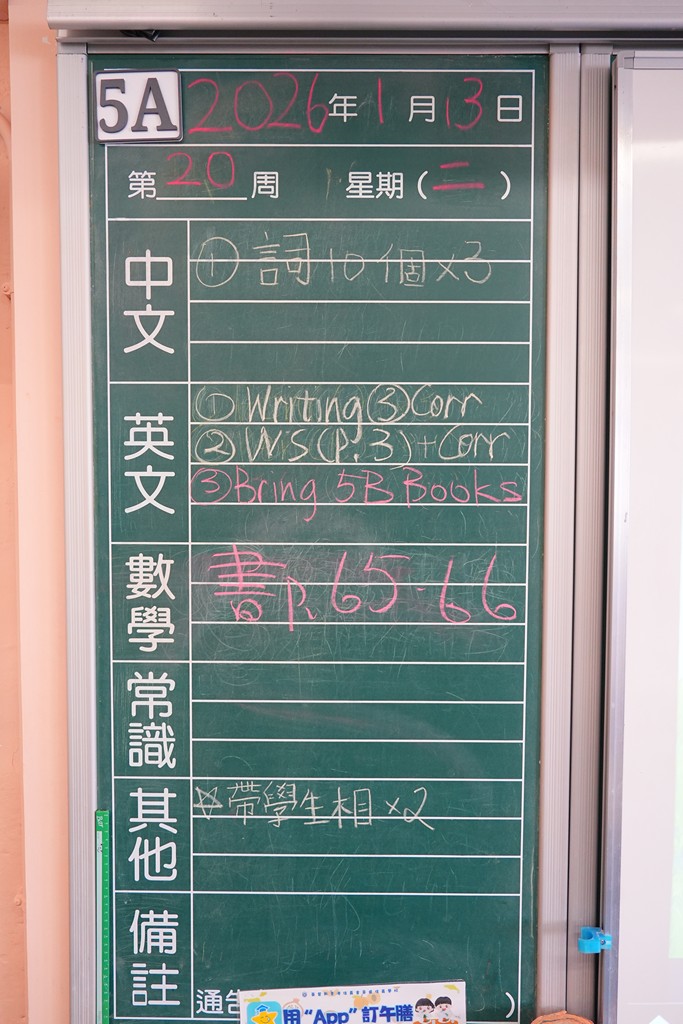 5A 2026年1月13日
第20周 星期(二)
中文
① 詞10個×3
英文
① Writing③Corr
② WS(P.3)+Corr
③Bring 5B Books
數學
書P.65-66
常識
其他
☆帶學生相×2
備註
通告 )
用“App”訂午膳